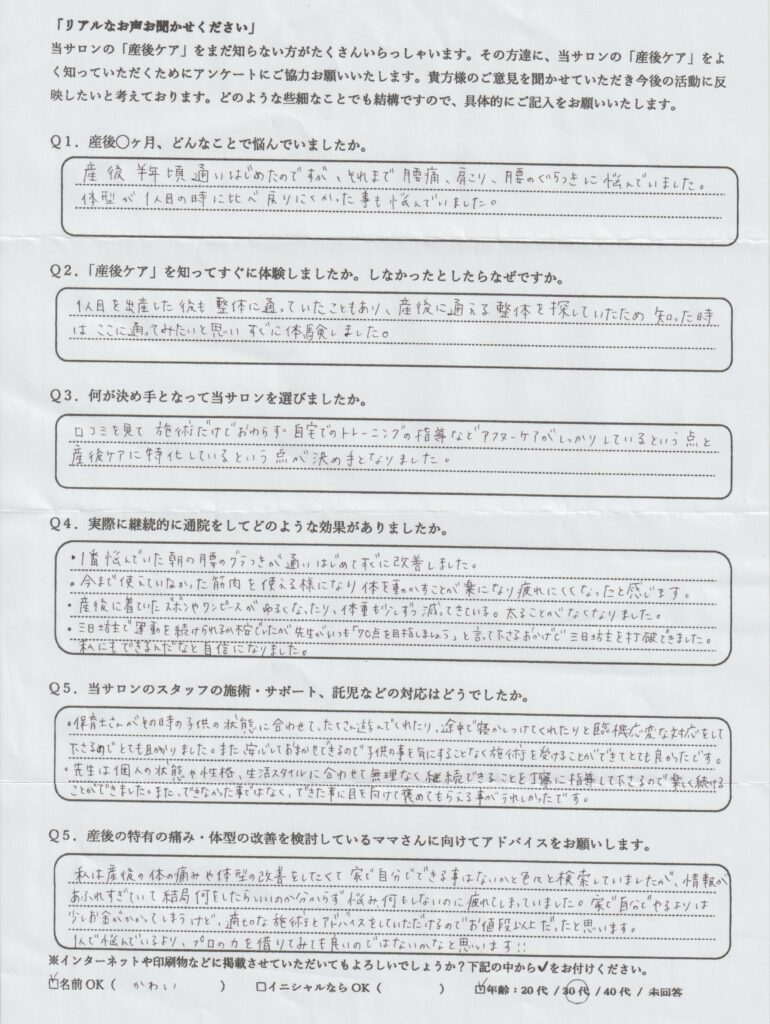 「リアルなお声お聞かせください」
当サロンの「産後ケア」をまだ知らない方がたくさんいらっしゃいます。その方達に、当サロンの「産後ケア」をよ
く知っていただくためにアンケートにご協力お願いいたします。貴方様のご意見を聞かせていただき今後の活動に反
映したいと考えております。どのような些細なことでも結構ですので、具体的にご記入をお願いいたします。
Q1．産後〇ヶ月、どんなことで悩んでいましたか。
産後 半年頃 通いはじめたのですが、それまで 腰痛、肩こり、腰のぐらつきに悩んでいました。
体型が 1人目の時に比べ 戻りにくかった事も悩んでいました。
Q2．「産後ケア」を知ってすぐに体験しましたか。しなかったとしたらなぜですか。
1人目を出産した後も 整体に通っていたこともあり、産後に通える整体を探していたため 知った時
は ここに通ってみたいと思い すぐに体験しました。
Q3．何が決め手となって当サロンを選びましたか。
口コミを見て 施術だけでおわらず 自宅でのトレーニングの指導などアフターケアがしっかりしているという点と
産後ケアに特化しているという点が決め手となりました。
Q4．実際に継続的に通院をしてどのような効果がありましたか。
・1番悩んでいた朝の腰のグラつきが通いはじめてすぐに改善しました。
・今まで使えていなかった筋肉を使える様になり 体を動かすことが楽になり疲れにくくなったと感じます。
・産後に着ていたズボンやワンピースがゆるくなったり、体重も少しずつ減ってきている。太ることがなくなりました。
・三日坊主で運動を続けられるか不安でしたが 先生がいつも「70点を目指しましょう」と言って下さるおかげで 三日坊主を打破できました。
私にもできるんだなと自信になりました。
Q5．当サロンのスタッフの施術・サポート、託児などの対応はどうでしたか。
・保育士さんがその時の子供の状態に合わせて、たくさん遊んでくれたり、途中で寝かしつけてくれたりと臨機応変な対応をして
下さるのでとても助かりました。また、安心しておまかせできるので子供の事を気にすることなく施術を受けることができてとても良かったです。
・先生は個人の状態や性格、生活スタイルに合わせて無理なく継続できることを丁寧に指導して下さるので楽しく続ける
ことができました。また、できなかった事ではなく、できた事に目を向けて褒めてもらえる事がうれしかったです。
Q5．産後の特有の痛み・体型の改善を検討しているママさんに向けてアドバイスをお願いします。
私は産後の体の痛みや体型の改善をしたくて 家で自分でできる事はないかと色々と検索していましたが、情報が
あふれすぎていて結局何をしたらいいのか分からず 悩み何もしないのに疲れてしまっていました。家で自分でやるよりは
少しお金がかかってしまうけど、適切な施術とアドバイスをしていただけるのでお値段以上だったと思います。
1人で悩んでいるより、プロの力を借りてみても良いのではないかなと思います!!
※インターネットや印刷物などに掲載させていただいてもよろしいでしょうか？下記の中から✓をお付けください。
☑名前OK（ かわい ） □イニシャルならOK（ ） ☑年齢：20代 / 30代 / 40代 / 未回答